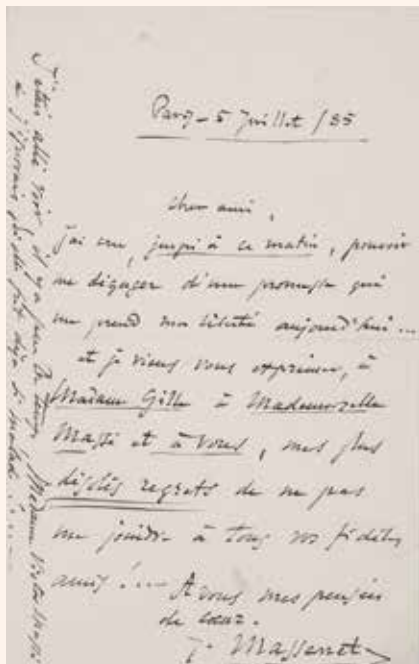 Paris - 5 Juillet /85
cher ami,
j'ai cru, jusqu'à ce matin, pouvoir
me dégager d'une promesse qui
me prend ma liberté aujourd'hui...
et je viens vous exprimer, à
Madame Gille à Mademoiselle
Massé et à vous, mes plus
désolés regrets de ne pas
me joindre à tous vos fidèles
amis !...
A vous mes pensées
de cœur.
J. Massenet
J'étais allé voir, il y a peu de temps Madame Victor Massé